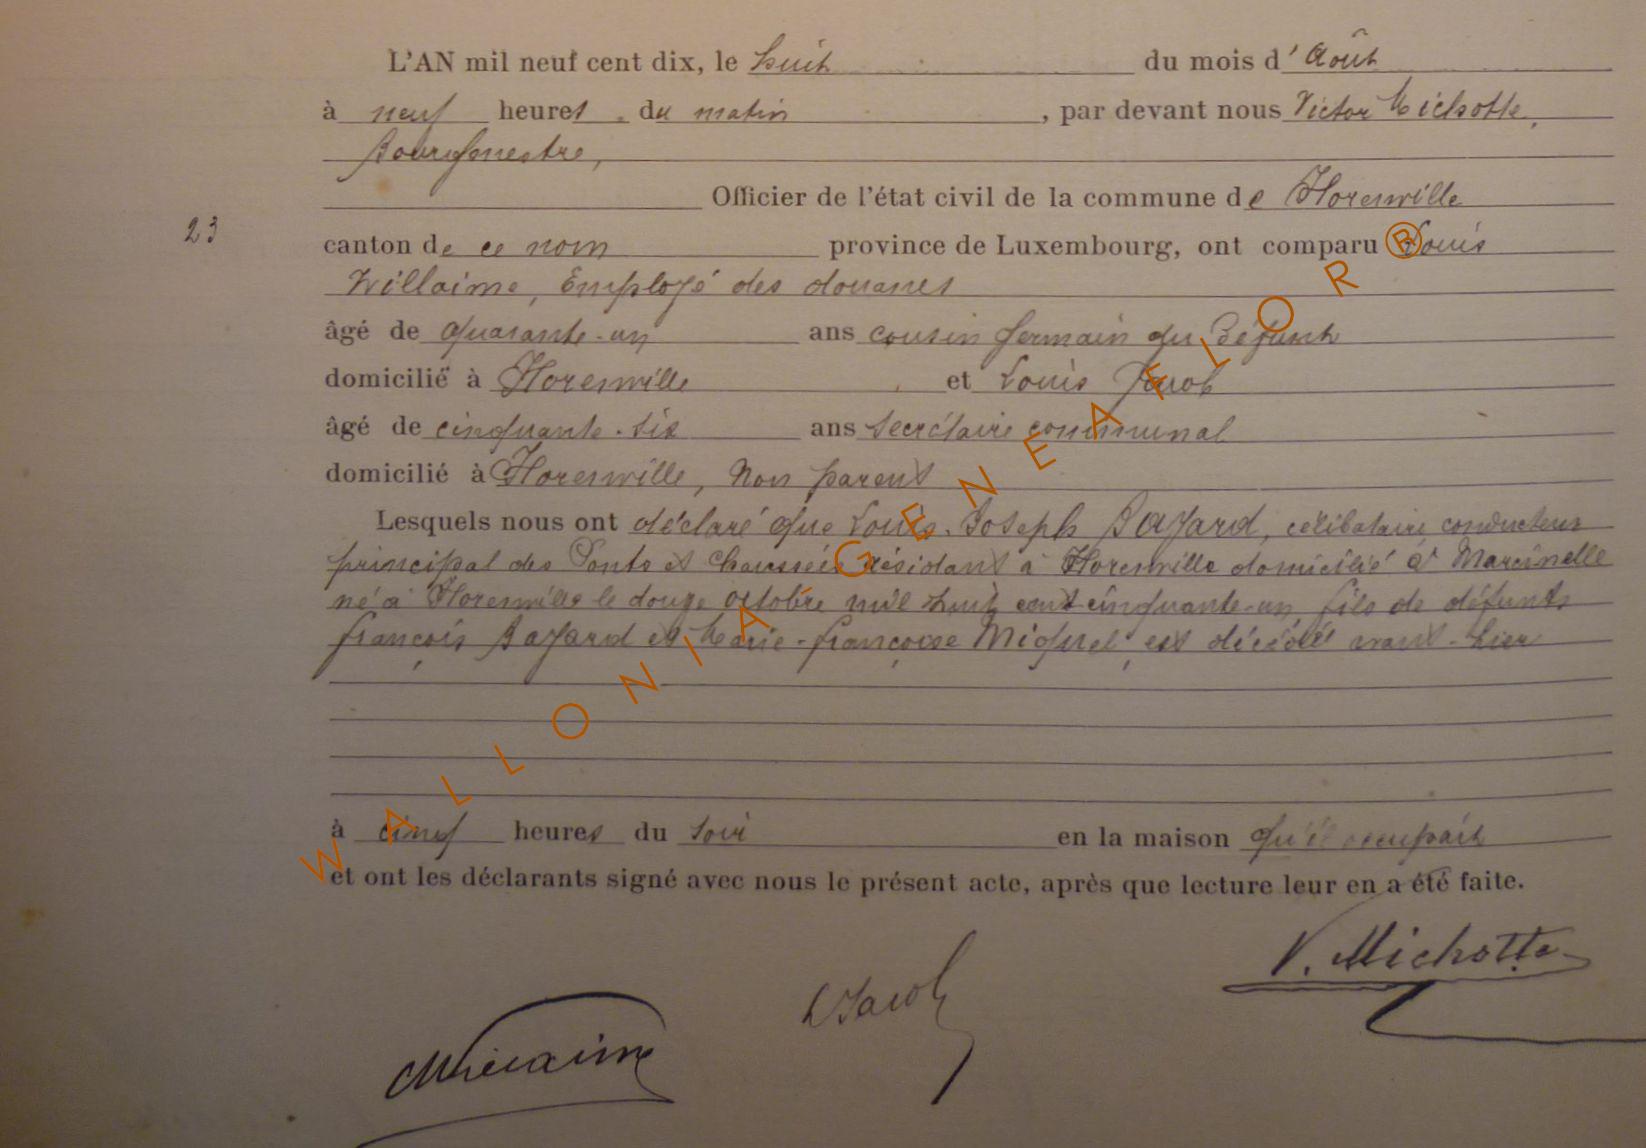 L'AN mil neuf cent dix, le huit du mois d'Août
à neuf heures du matin, par devant nous Victor Michotte,
Bourgmestre,
Officier de l'état civil de la commune de Florenville
23
canton de ce nom province de Luxembourg, ont comparu Louis
Willaime, Employé des douanes
âgé de quarante-un ans cousin germain du Défunt
domicilié à Florenville et Louis Jacob
âgé de cinquante-six ans secrétaire communal
domicilié à Florenville, Non parent
Lesquels nous ont déclaré que Louis-Joseph Bayard, célibataire conducteur
principal des Ponts et Chaussées résidant à Florenville domicilié à Marcinelle
né à Florenville le douze octobre mil huit cent cinquante-un, fils de défunts
François Bayard et Marie-Françoise Miquel, est décédé avant-hier
à cinq heures du soir en la maison qu'il occupait
et ont les déclarants signé avec nous le présent acte, après que lecture leur en a été faite.
V. Michotte
L Jacob
Willaime
WALLONIA GENEAFLOR ®